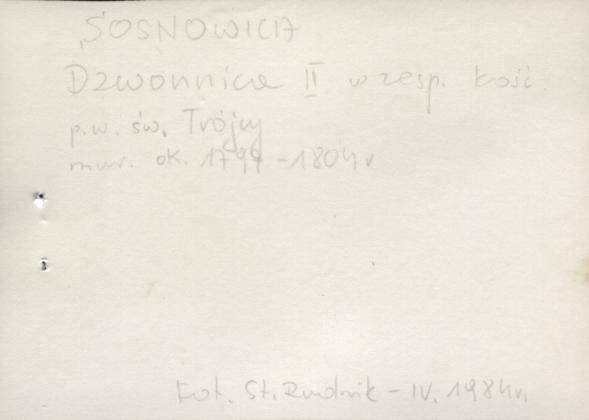 SOSNOWICA
Dzwonnica II w zesp. kość.
p.w. św. Trójcy
mur. ok. 1797-1804 r
Fot. St. Rudnik - IV. 1984 r.